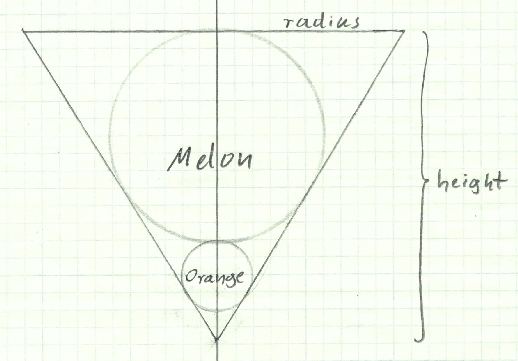 radius
Melon
height
Orange